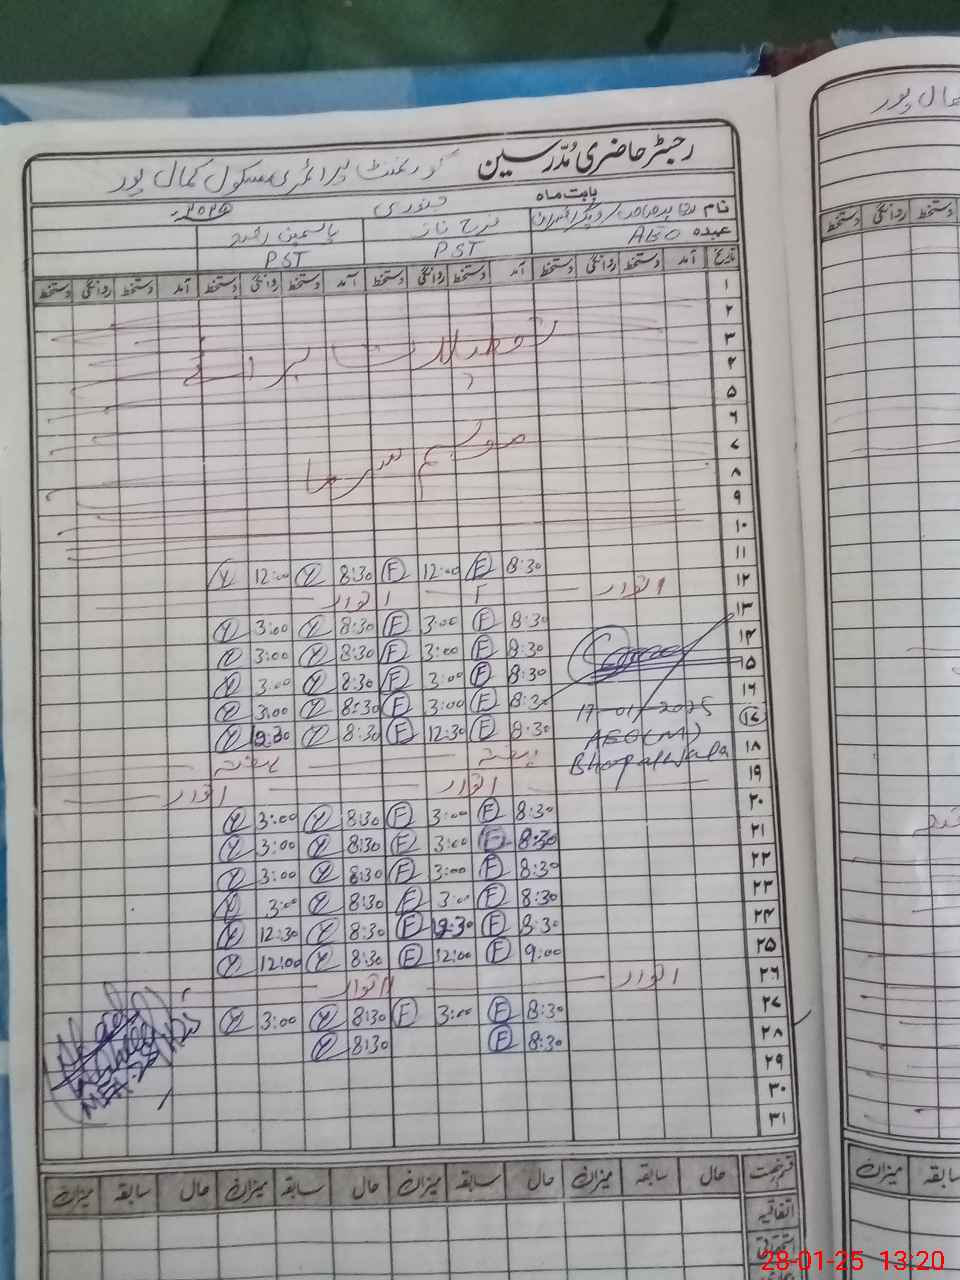 رجسٹر حاضری مدّرسین گورنمنٹ پرائمری سکول کمال پور
بابت ماہ جنوری ۲۰۲۵ء
نام فرح ناز یاسمین
عہدہ AEO PST PST
تاریخ آمد دستخط روانگی دستخط آمد دستخط روانگی دستخط آمد دستخط روانگی دستخط
۱
۲
۳ تعطیلات برائے
۴
۵
۶
۷ موسم سرما
۸
۹
۱۰
۱۱ 8:30 F 12:00 F 8:30 Y 12:00 Y
۱۲ اتوار اتوار
۱۳ 8:30 F 3:00 F 8:30 Y 3:00 Y
۱۴ 8:30 F 3:00 F 8:30 Y 3:00 Y
۱۵ 8:30 F 3:00 F 8:30 Y 3:00 Y
۱۶ 8:30 F 3:00 F 8:30 Y 3:00 Y
۱۷ 8:30 F 12:30 F 8:30 Y 12:30 Y
17-01-2025
AEO(M)
Bhopalwala
۱۸ ہفتہ ہفتہ
۱۹ اتوار اتوار
۲۰ 8:30 F 3:00 F 8:30 Y 3:00 Y
۲۱ 8:30 F 3:00 F 8:30 Y 3:00 Y
۲۲ 8:30 F 3:00 F 8:30 Y 3:00 Y
۲۳ 8:30 F 3:00 F 8:30 Y 3:00 Y
۲۴ 8:30 F 12:30 F 8:30 Y 12:30 Y
۲۵ 9:00 F 12:00 F 8:30 Y 12:00 Y
۲۶ اتوار اتوار
۲۷ 8:30 F 3:00 F 8:30 Y 3:00 Y
۲۸ 8:30 F 8:30 Y
۲۹
۳۰
۳۱
قسم رخصت حال سابقہ میزان حال سابقہ میزان حال سابقہ میزان حال سابقہ میزان
اتفاقیہ
استحقاقی
کمال پور
دستخط روانگی دستخط
میزان سابقہ
28-01-25 13:20